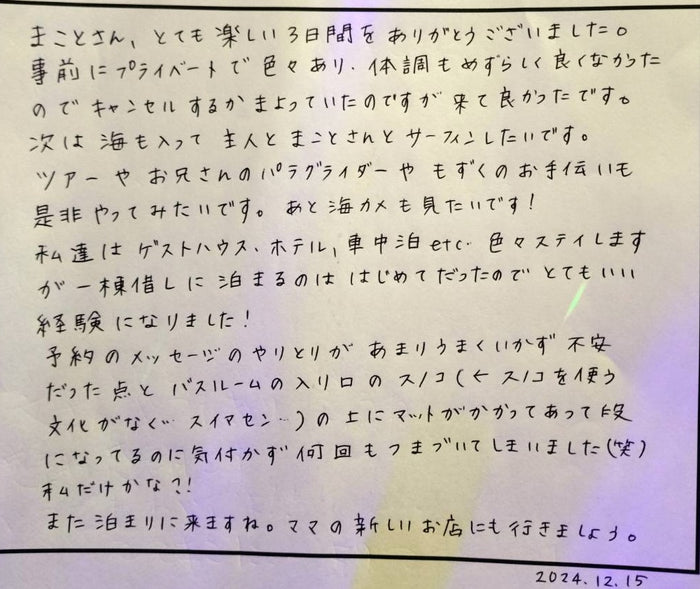 まことさん、とても楽しい3日間をありがとうございました。
事前にプライベートで色々あり、体調もめずらしく良くなかった
のでキャンセルするかまよっていたのですが来て良かったです。
次は海も入って主人とまことさんとサーフィンしたいです。
ツアーやお兄さんのパラグライダーやもずくのお手伝いも
是非やってみたいです。あと海カメも見たいです!
私達はゲストハウス、ホテル、車中泊etc…色々ステイします
が一棟借しに泊まるのははじめてだったのでとてもいい
経験になりました!
予約のメッセージのやりとりがあまりうまくいかず不安
だった点とバスルームの入り口のスノコ(←スノコを使う
文化がなく…スイマセン…)の上にマットがかかってあって段
になってるのに気付かず何回もつまづいてしまいました(笑)
私だけかな?!
また泊まりに来ますね。ママの新しいお店にも行きましょう。
2024.12.15